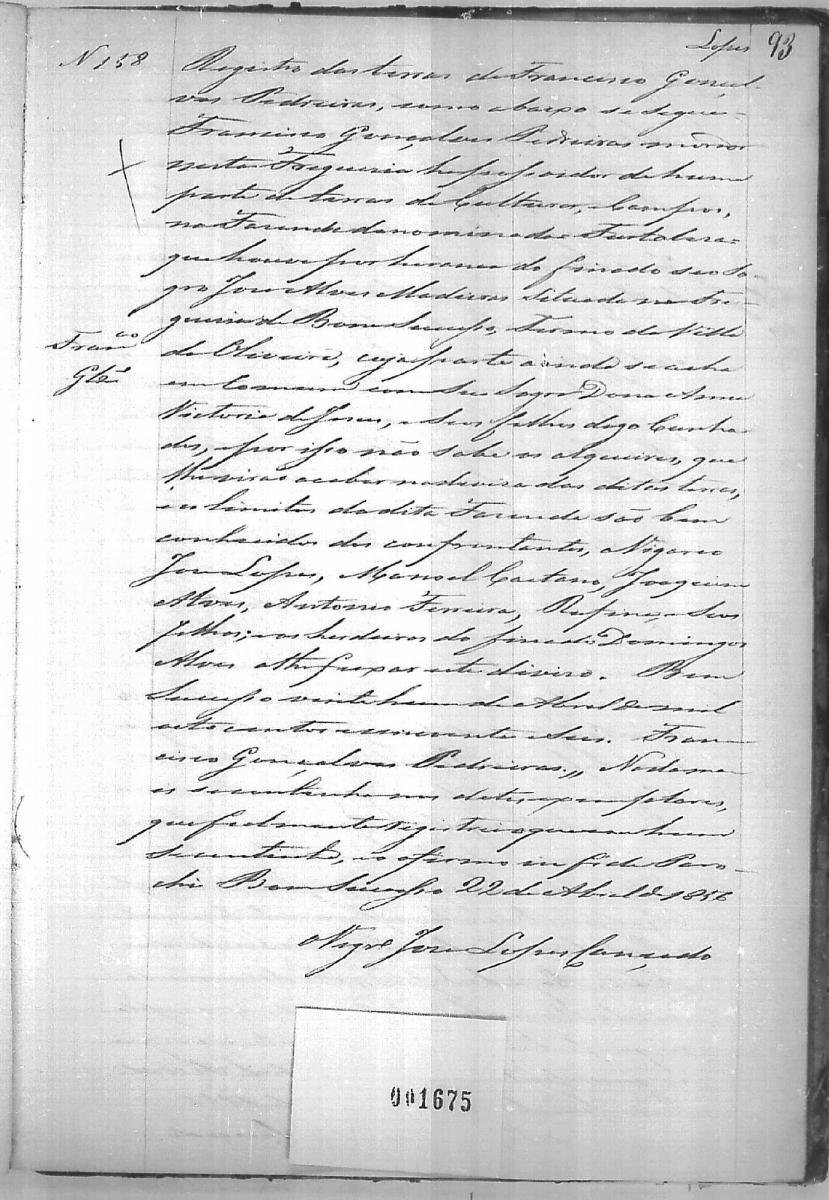 Lopes 93
N 158
Registro das terras de Francisco Gonçal-
ves Pedreiras, como abaixo se segue -
Francisco Gonçalves Pedreiras morador
nesta Freguezia he possuidor de huma
parte de terras de Culturas, Campos,
na Fazenda denominada = Fortaleza =
que houve por herança do finado seo So-
gro Jose Alves Madeira situada na Fre-
guezia de Bom Sucesso, Termo da Villa
Franco
Glz
de Oliveira, cuja parte ainda se acha
em Comum com sua Sogra Dona Anna
Victoria de Jesus, e seus filhos digo Cunha-
dos, e por isso não sabe os alqueires, que
lhe virão a caber na deviza das ditas terras,
e os limites da dita Fazenda são bem
conhecidos dos confrontantes, o Vigario
Jose Lopes, Manoel Caetano, Joaquim
Alves, Antonio Ferreira, e seos
filhos; e os herdeiros do finado Domingos
Alves athe fexar este divizo. Bom
Sucesso vinte hum de Abril de mil
oito centos e cincoenta e seis. Fran-
cisco Gonçalves Pedreiras. „ Nada ma-
is se continha nos dous exemplares,
que fielmente registrei o que em hum
se contem, e o afirmo in fide Paro-
chi Bom Sucesso 22 de Abril de 1856
O Vigrº Jose Lopes Cançado
001675